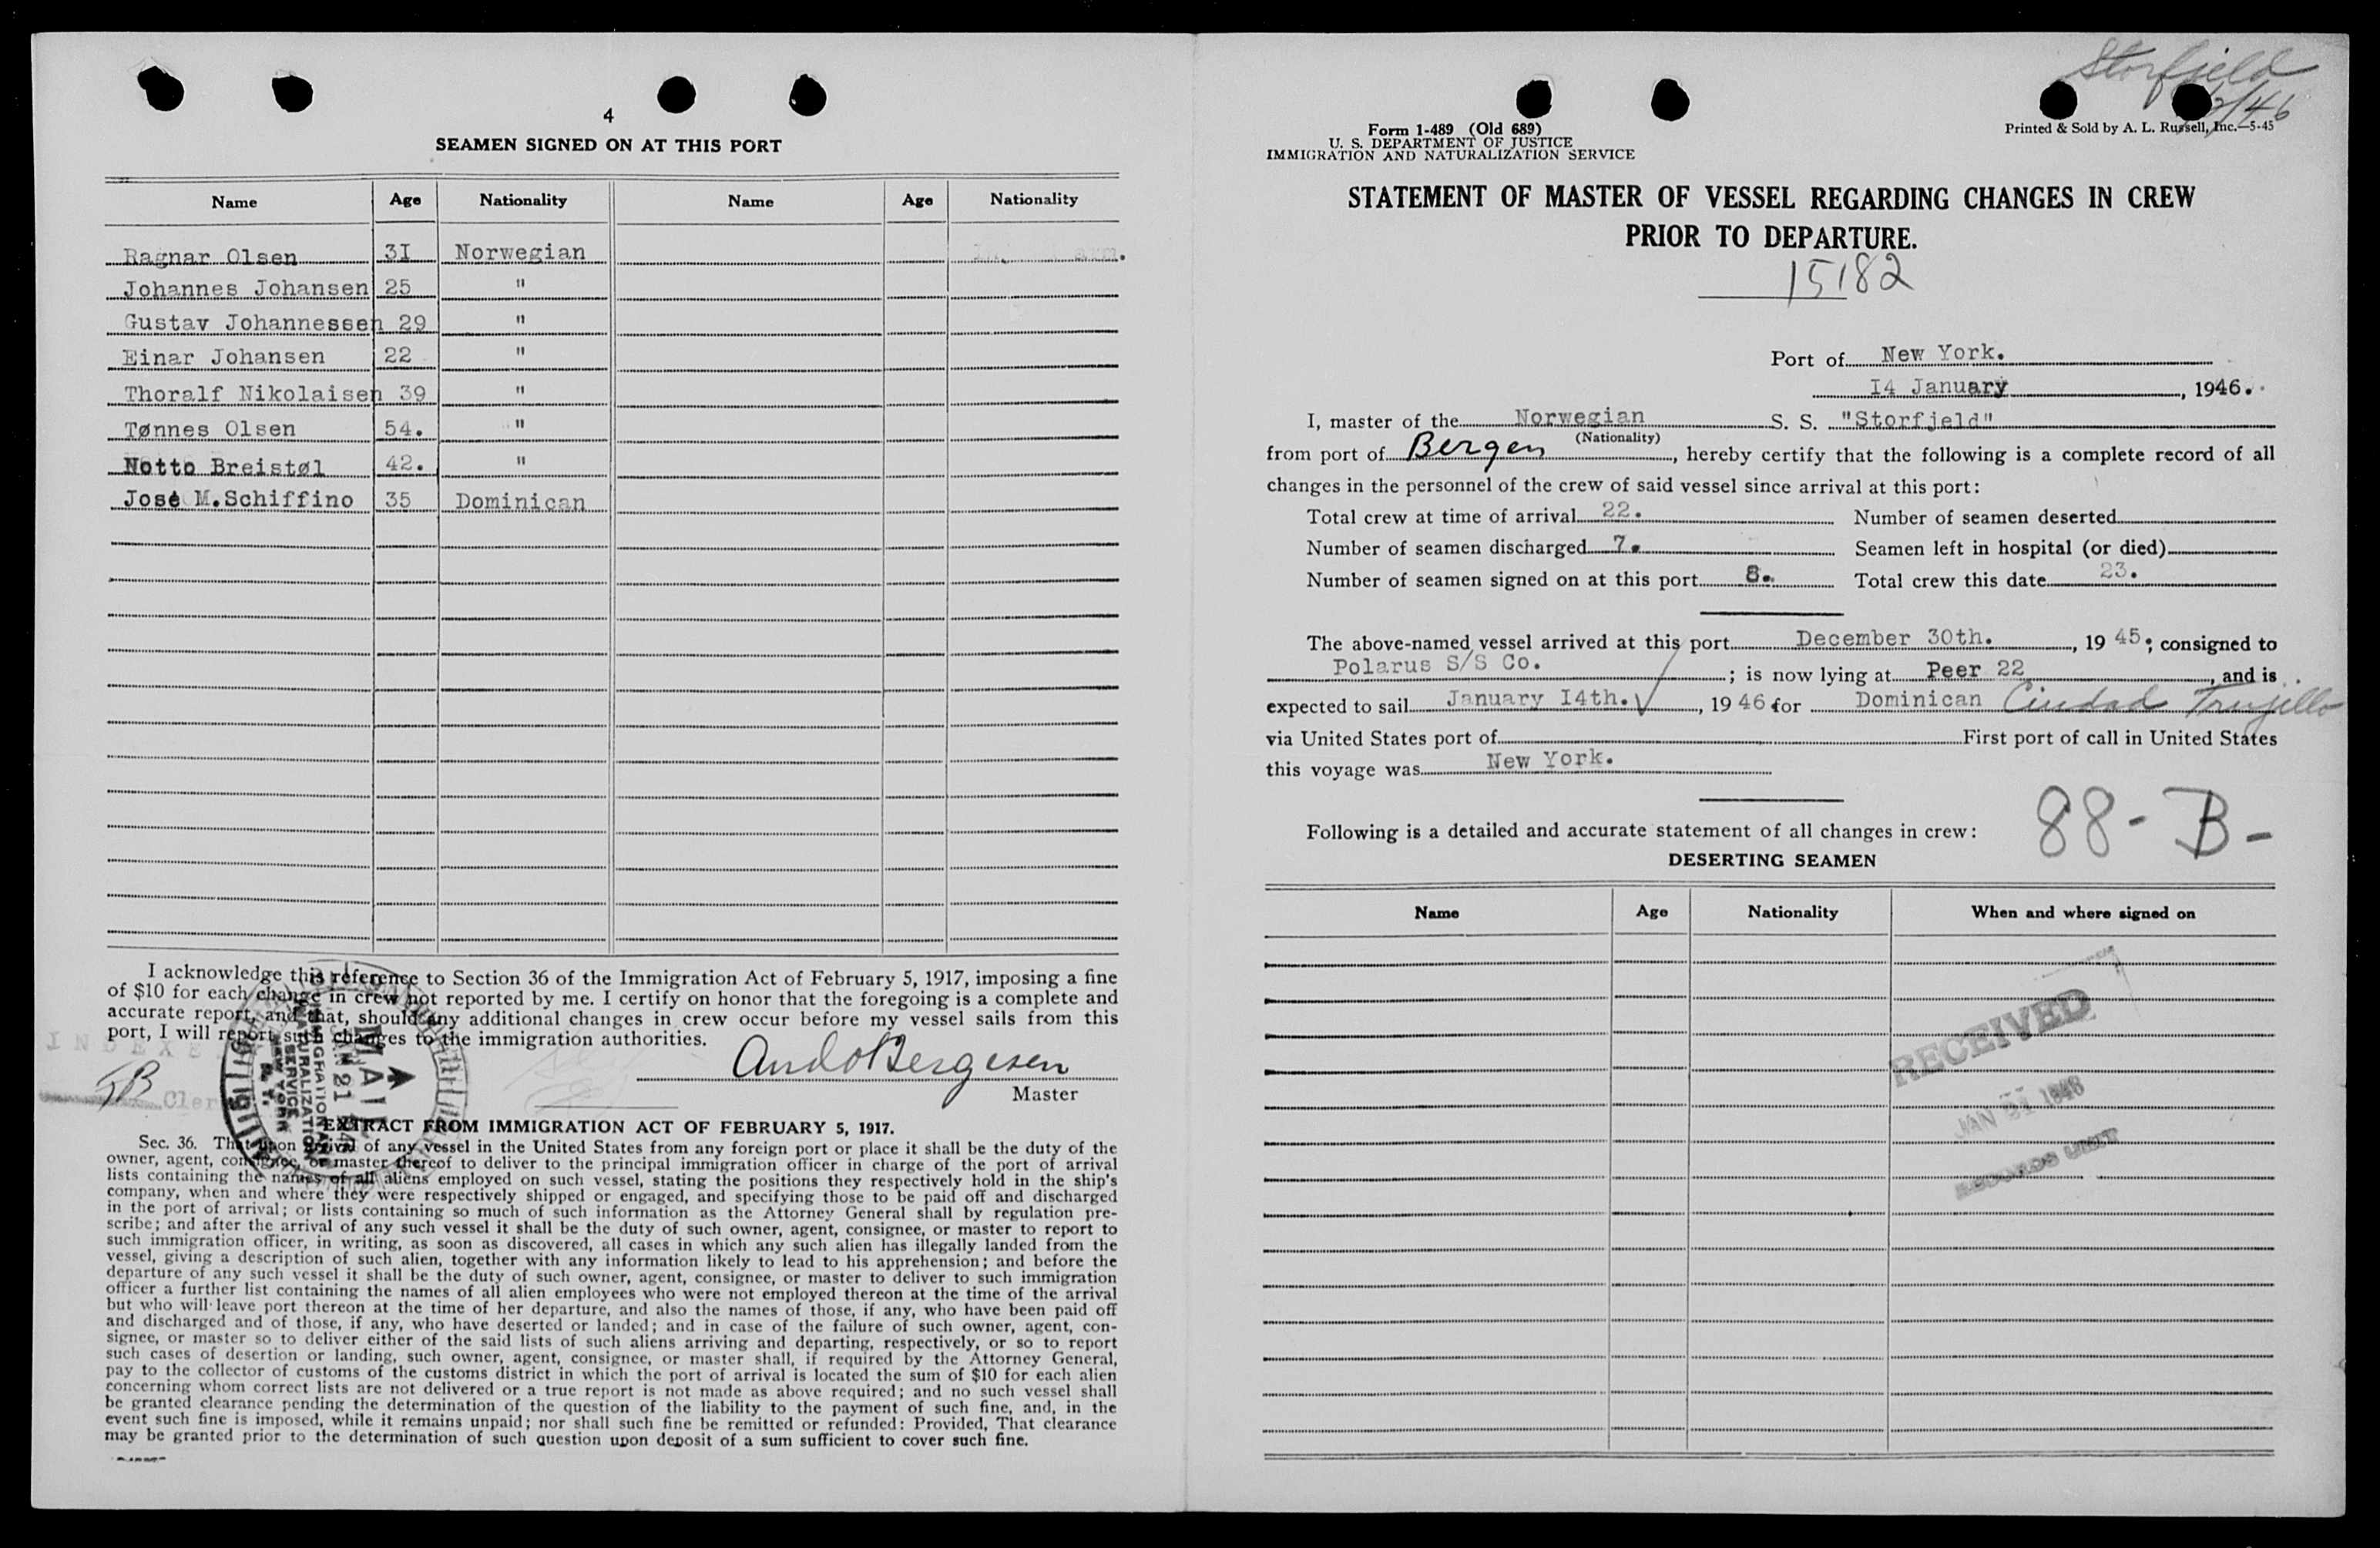 4
SEAMEN SIGNED ON AT THIS PORT
Name Age Nationality Name Age Nationality
Ragnar Olsen 3I Norwegian
Johannes Johansen 25 "
Gustav Johannessen 29 "
Einar Johansen 22 "
Thoralf Nikolaisen 39 "
Tønnes Olsen 54. "
Notto Breistøl 42. "
José M.Schiffino 35 Dominican
I acknowledge this reference to Section 36 of the Immigration Act of February 5, 1917, imposing a fine
of $10 for each change in crew not reported by me. I certify on honor that the foregoing is a complete and
accurate report, and that, should any additional changes in crew occur before my vessel sails from this
port, I will report such changes to the immigration authorities.
Master
MAIL
JAN 21
IMMIGRATION AND
NATURALIZATION
SERVICE
NEW YORK
N. Y.
EXTRACT FROM IMMIGRATION ACT OF FEBRUARY 5, 1917.
Sec. 36. That upon arrival of any vessel in the United States from any foreign port or place it shall be the duty of the
owner, agent, consignee, or master thereof to deliver to the principal immigration officer in charge of the port of arrival
lists containing the names of all aliens employed on such vessel, stating the positions they respectively hold in the ship's
company, when and where they were respectively shipped or engaged, and specifying those to be paid off and discharged
in the port of arrival; or lists containing so much of such information as the Attorney General shall by regulation pre-
scribe; and after the arrival of any such vessel it shall be the duty of such owner, agent, consignee, or master to report to
such immigration officer, in writing, as soon as discovered, all cases in which any such alien has illegally landed from the
vessel, giving a description of such alien, together with any information likely to lead to his apprehension; and before the
departure of any such vessel it shall be the duty of such owner, agent, consignee, or master to deliver to such immigration
officer a further list containing the names of all alien employees who were not employed thereon at the time of the arrival
but who will leave port thereon at the time of her departure, and also the names of those, if any, who have been paid off
and discharged and of those, if any, who have deserted or landed; and in case of the failure of such owner, agent, con-
signee, or master so to deliver either of the said lists of such aliens arriving and departing, respectively, or so to report
such cases of desertion or landing, such owner, agent, consignee, or master shall, if required by the Attorney General,
pay to the collector of customs of the customs district in which the port of arrival is located the sum of $10 for each alien
concerning whom correct lists are not delivered or a true report is not made as above required; and no such vessel shall
be granted clearance pending the determination of the question of the liability to the payment of such fine, and, in the
event such fine is imposed, while it remains unpaid; nor shall such fine be remitted or refunded: Provided, That clearance
may be granted prior to the determination of such question upon deposit of a sum sufficient to cover such fine.
Storfjeld
Form 1-489 (Old 689)
U. S. DEPARTMENT OF JUSTICE
IMMIGRATION AND NATURALIZATION SERVICE
Printed & Sold by A. L. Russell, Inc.—5-45
STATEMENT OF MASTER OF VESSEL REGARDING CHANGES IN CREW
PRIOR TO DEPARTURE.
15182
Port of New York.
I4 January, 1946.
I, master of the Norwegian S. S. "Storfjeld"
(Nationality)
from port of Bergen, hereby certify that the following is a complete record of all
changes in the personnel of the crew of said vessel since arrival at this port:
Total crew at time of arrival 22. Number of seamen deserted
Number of seamen discharged 7. Seamen left in hospital (or died)
Number of seamen signed on at this port 8. Total crew this date 23.
The above-named vessel arrived at this port December 30th., 19 45; consigned to
Polarus S/S Co.; is now lying at Peer 22, and is
expected to sail January I4th., 19 46 for Dominican Ciudad Trujillo
via United States port of First port of call in United States
this voyage was New York.
88-B-
Following is a detailed and accurate statement of all changes in crew:
DESERTING SEAMEN
Name Age Nationality When and where signed on
RECEIVED
RECORDS UNIT